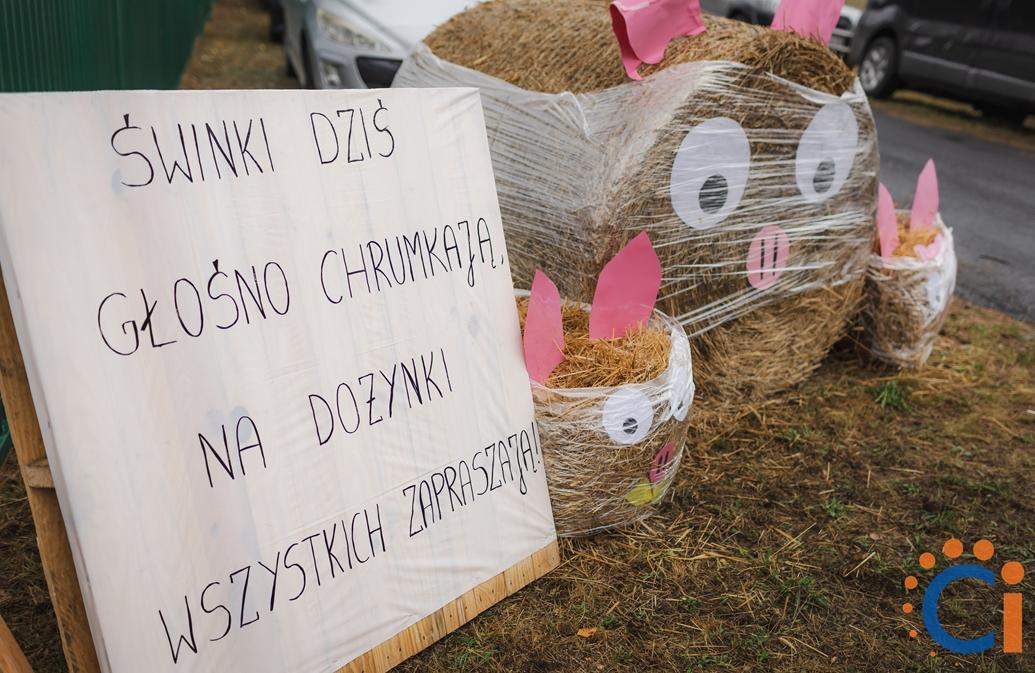 ŚWINKI DZIŚ
GŁOŚNO CHRUMKAJĄ,
NA DOŻYNKI
WSZYSTKICH ZAPRASZAJĄ!
Ci